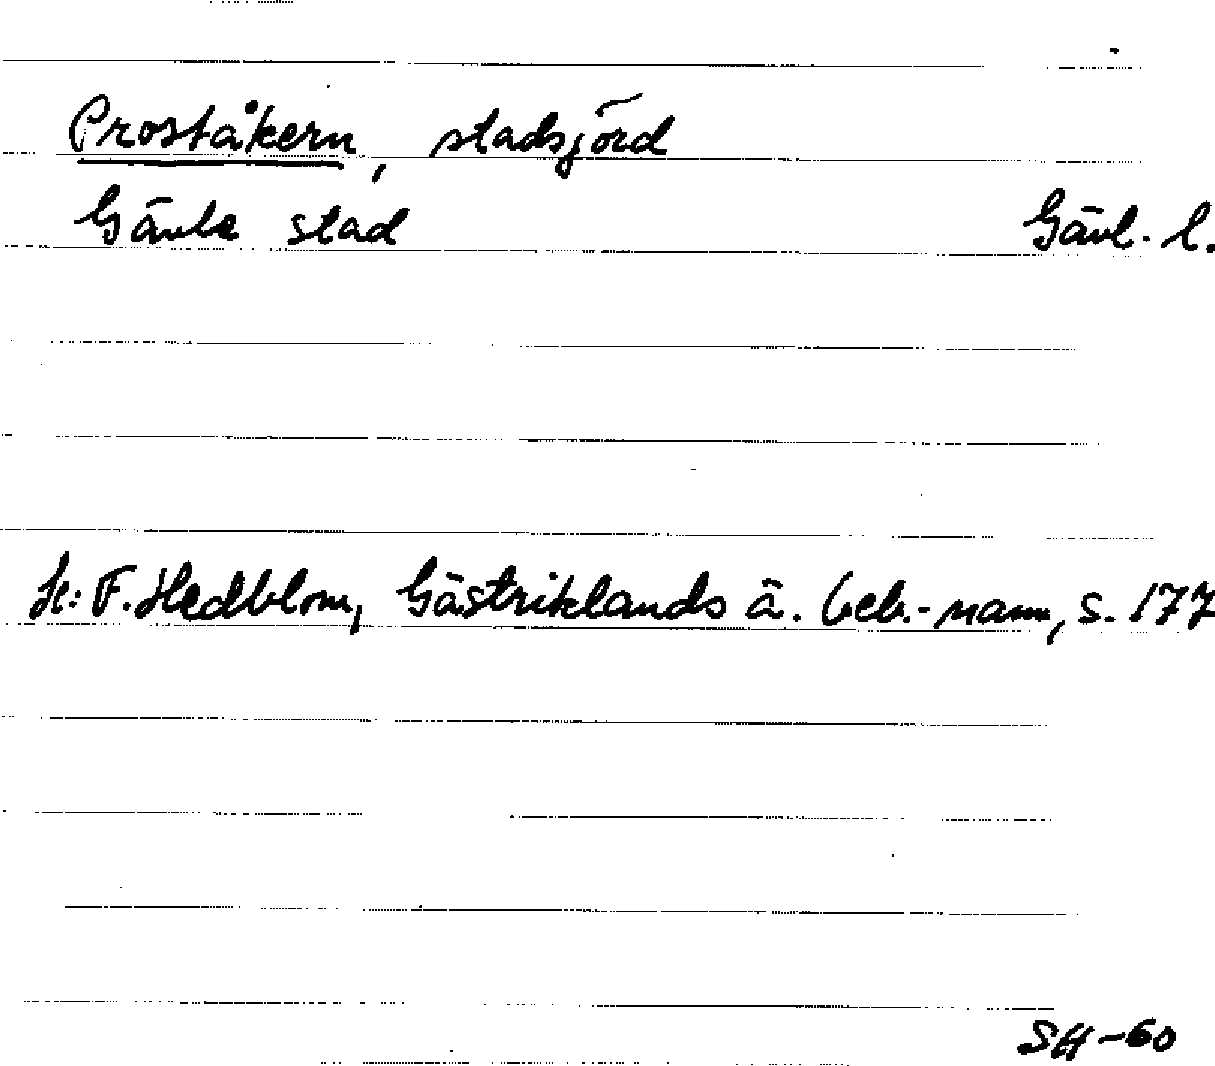 Proståkern, stadsjord
Gävle stad Gävl. l.
lt: F. Hedblom, Gästriklands ä. beb.-namn, s. 177
SH-60